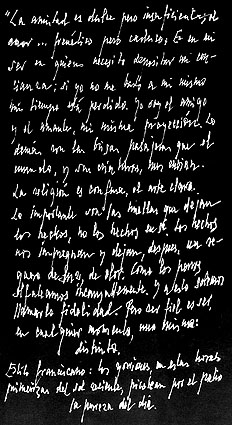 "La amistad es dulce pero insuficiente; el
amor... frenético pero caduco; Es en mi
ser en quien necesito depositar mi con-
fianza; si yo no me salvo a mí mismo
mi tiempo está perdido. Yo soy el amigo
y el amante, mi misma proyección. Lo
demás son las fugas pasajeras que el
mundo, y sus criaturas, nos
La religión es confusa, el arte claro.
Lo importante son las huellas que dejan
los hechos, no los hechos en sí. Los hechos
nos impregnan y dejan, después, un re-
guero de de olor. Como los perros
olfateamos incansablemente. Y a esto solemos
llamarle fidelidad. Pero ser fiel es ser
en cualquier momento, uno mismo:
distinto.
Estilo franciscano: los gorriones, en estas horas
primerizas del sol saliente, picotean por el patio
la pureza del día.